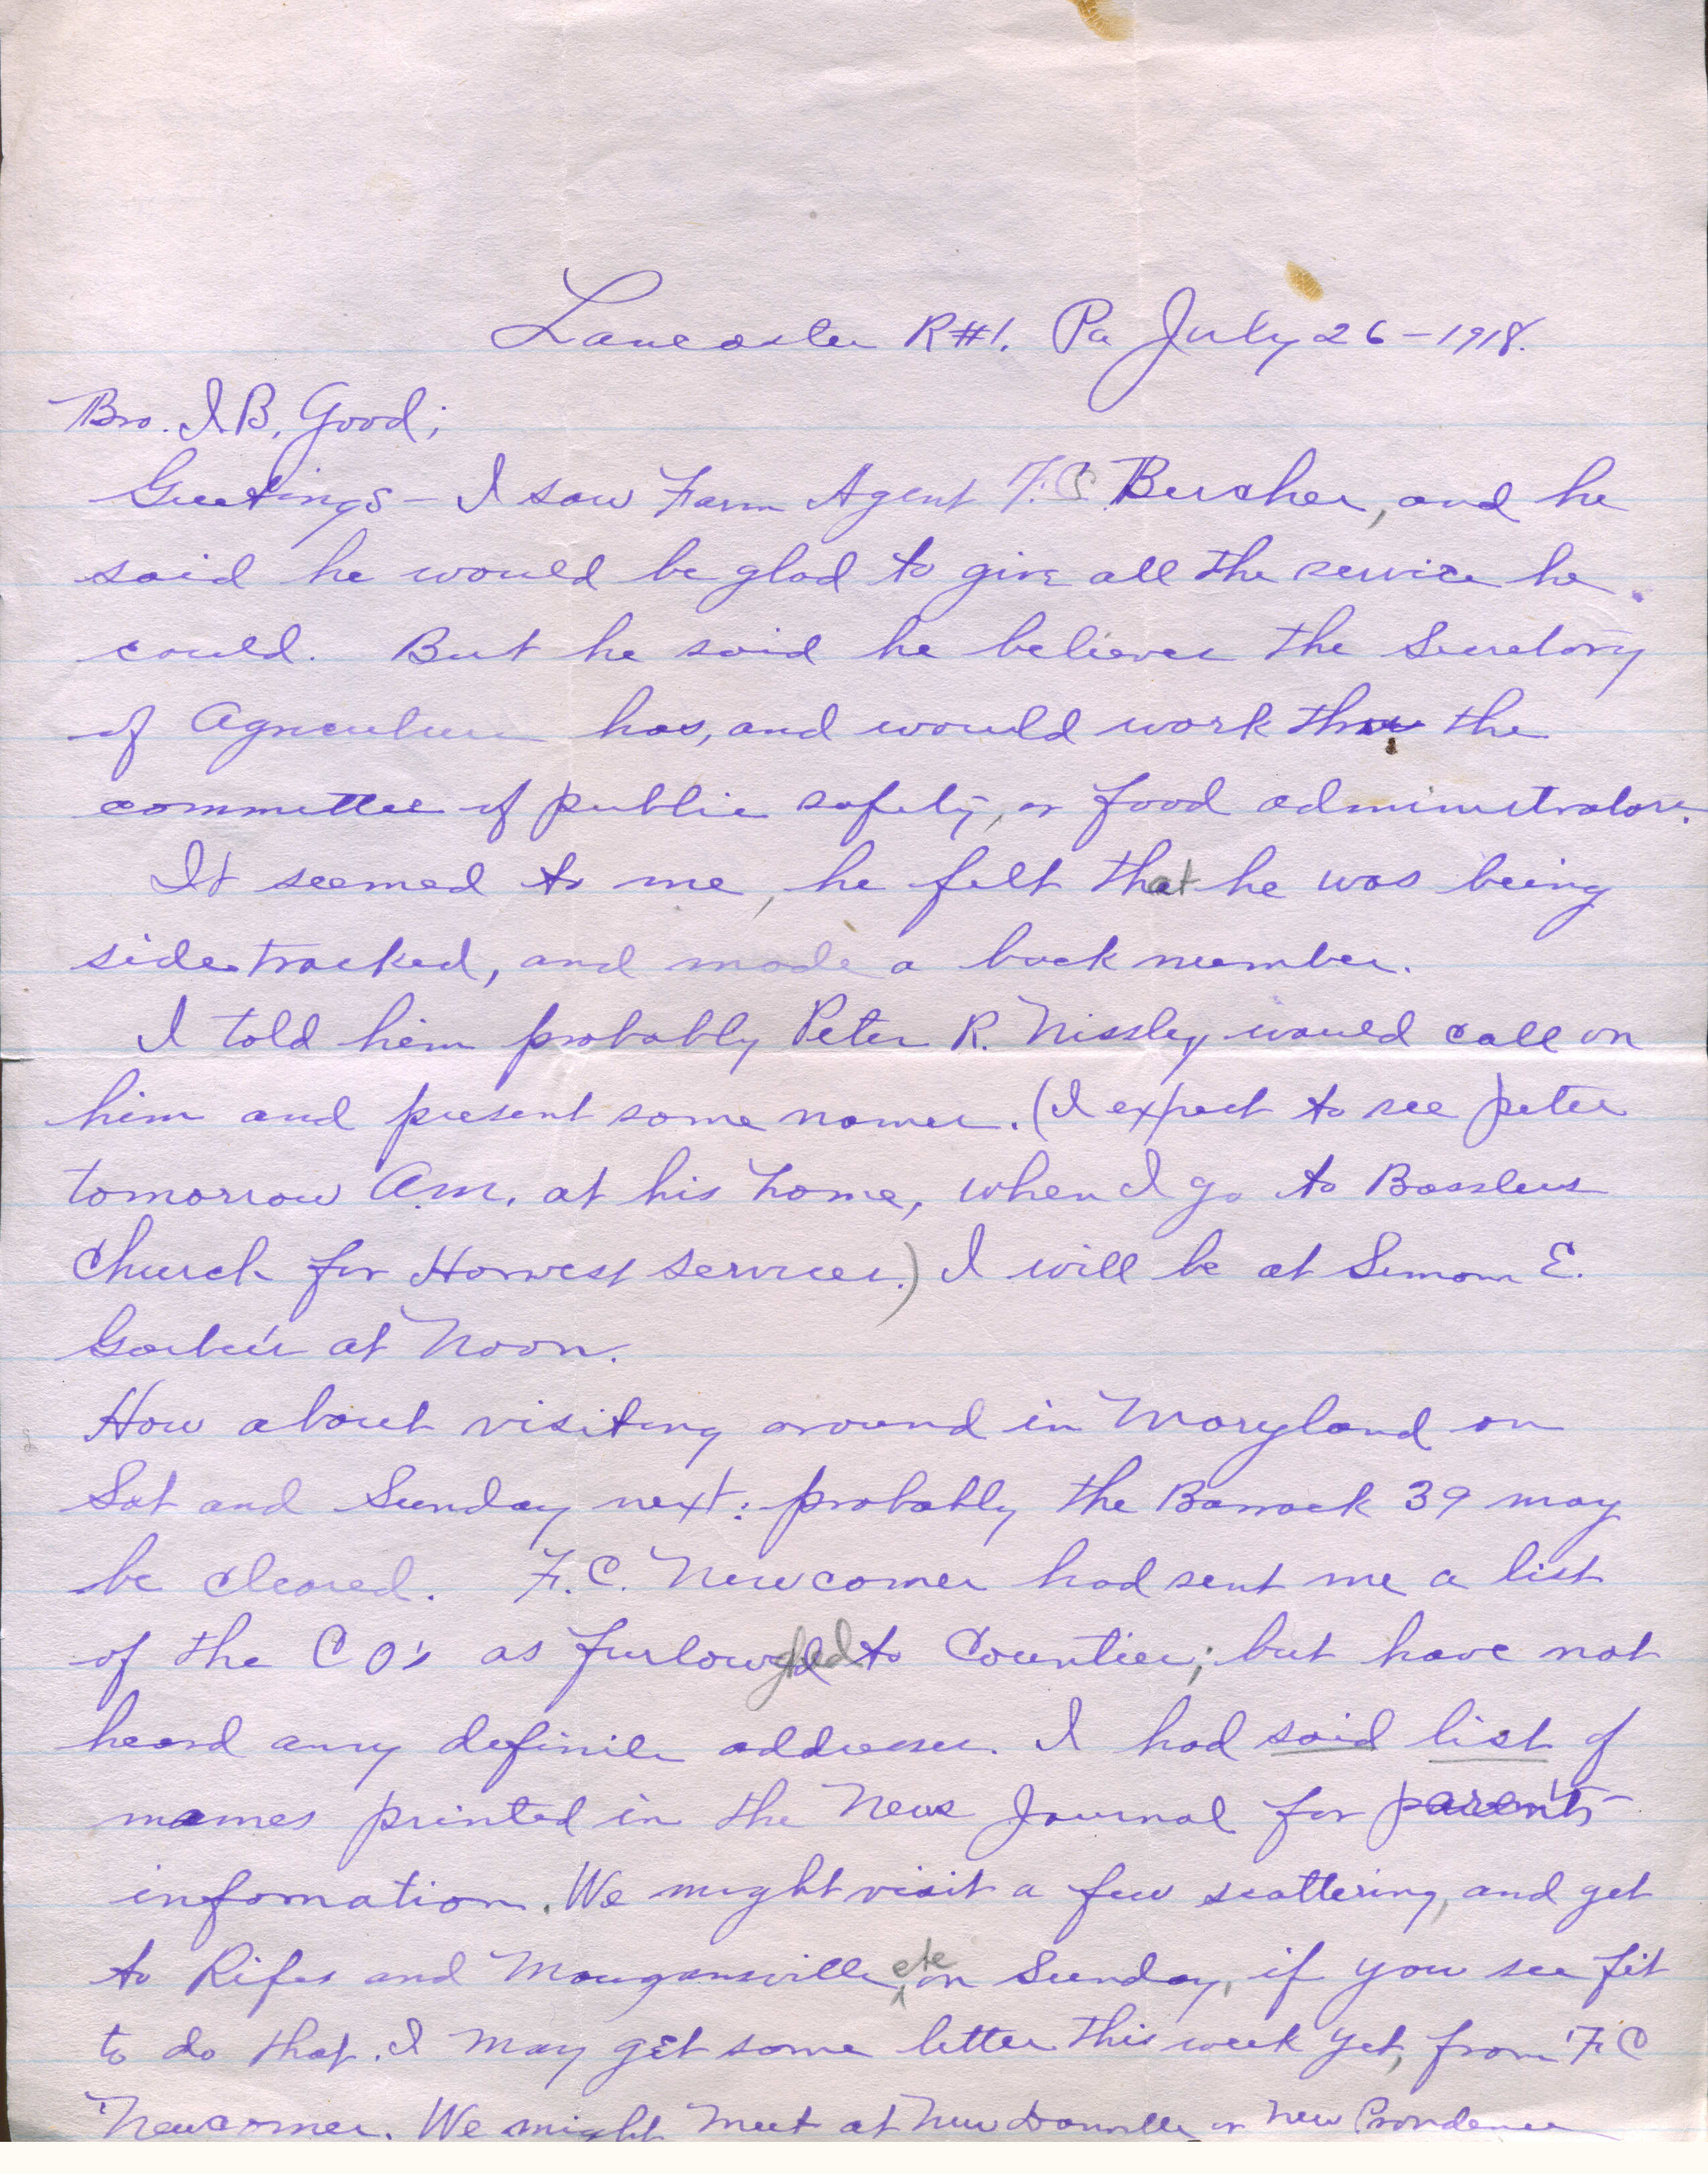 Lancaster R#1. Pa July 26 - 1918.
Bro. I.B. Good;
Greetings - I saw Farm Agent F.S. Bucher, and he
said he would be glad to give all the service he
could. But he said he believes the Secretary
of Agriculture has, and would work thru the
committee of public safety, or food administrator.
It seemed to me, he felt that he was being
sidetracked, and made a back number.
I told him probably Peter R. Nissley would call on
him and present some names. (I expect to see peter
tomorrow A.M. at his home, when I go to Bosslers
Church for Harvest services.) I will be at Simon E.
Garber's at Noon.
How about visiting around in Maryland on
Sat and Sunday next: probably the Barrack 39 may
be cleared. F.C. Newcomer had sent me a list
of the CO's as furloughed to Counties; but have not
heard any definite addresses. I had said list of
names printed in the News Journal for parents
information. We might visit a few scattering, and get
to Rifes and Maugansville, etc on Sunday, if you see fit
to do that. I may get some letter this week yet, from F C
Newcomer. We might meet at New Danville or New Providence